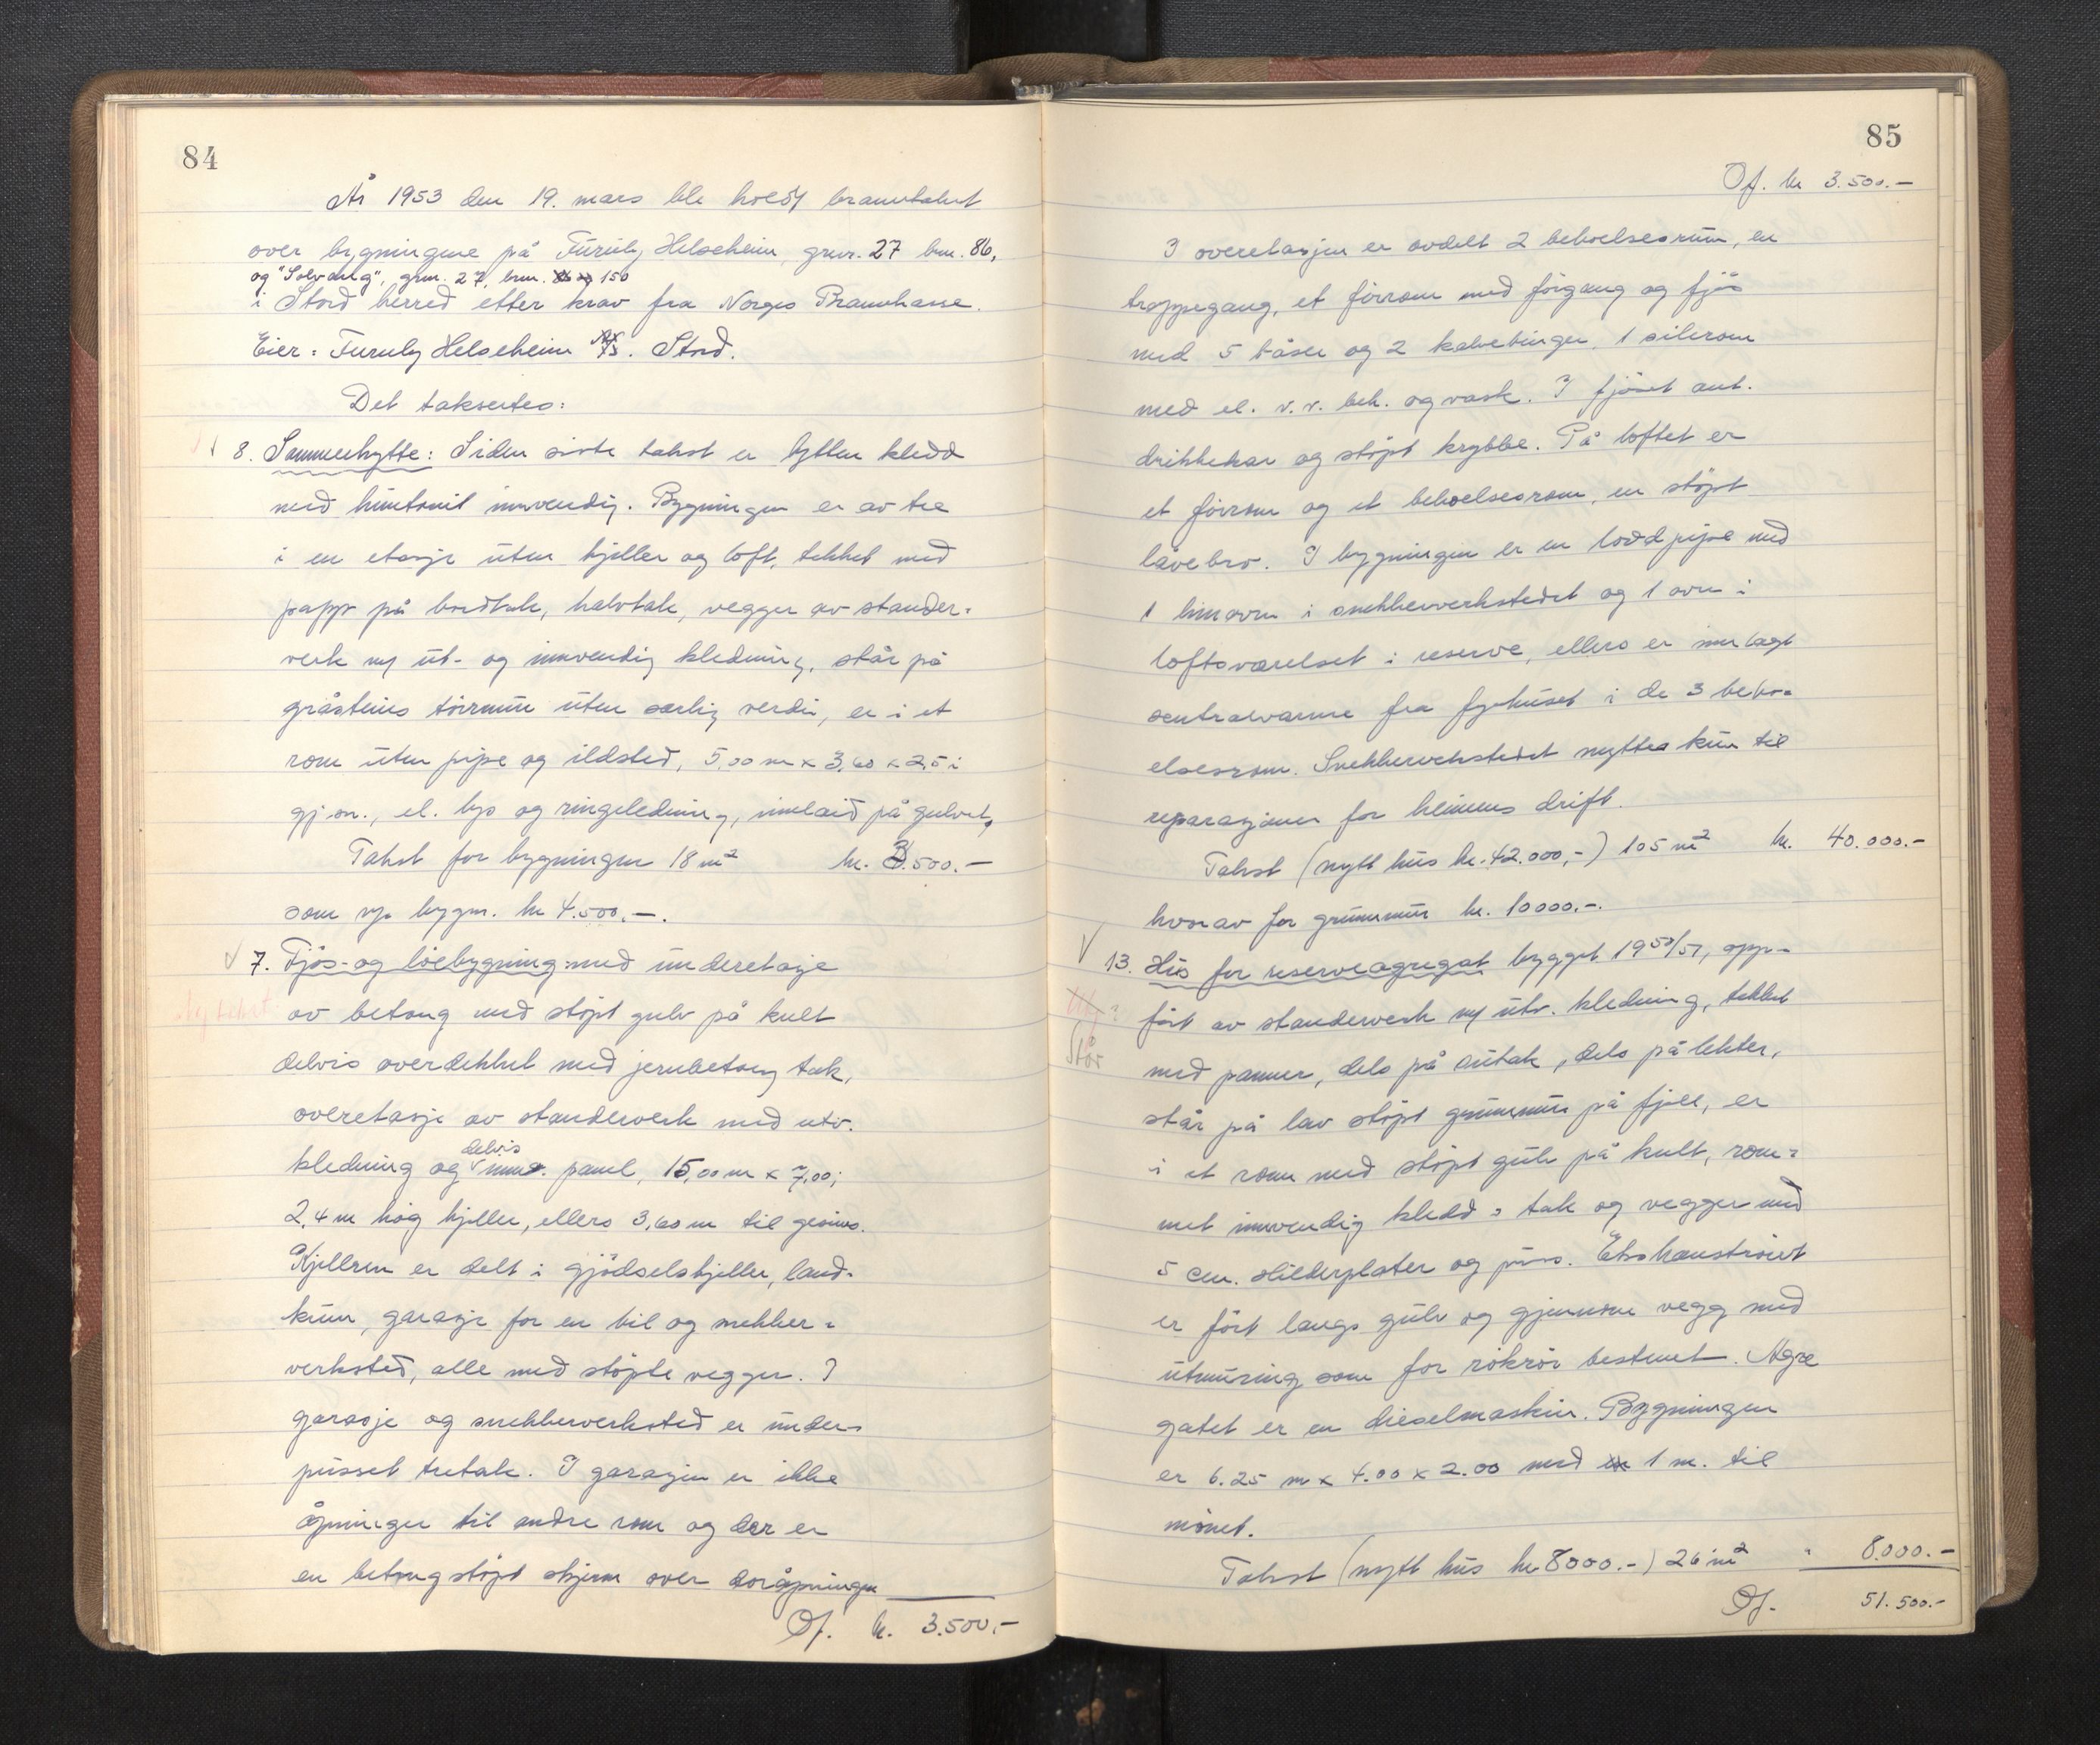 84
År 1953 den 19. mars ble holdt branntakst
over bygningene på Furuly Helseheim, gnr. 27 bnr. 86,
og "Solvang", gnr. 27, bnr. 150
i Stord herred etter krav fra Norges Brannkasse.
Eier: Furuly Helseheim A/S. Stord.
Det takseres:
8. Sommerhytte: Siden siste takst er hytten kledd
med huntonit innvendig. Bygningen er av tre
i en etasje uten kjeller og loft, tekket med
papp på bordtak, halvtak, vegger av stender-
verk m/ ut- og innvendig kledning, står på
gråsteins tørrmur uten særlig verdi, er i et
rom uten pipe og ildsted, 5,00 m x 3,60 x 2,5 i
gj.sn., el. lys og ringeledning, innlaid på gulvet,
Takst for bygningen 18 m² kr. 3.500.-
som ny bygn. kr 4.500.-.
7. Fjøs- og löebygning: med underetasje
Ny takst
av betong med støpt gulv på kult
delvis overdekket med jernbetong tak,
overetasje av standerverk med utv.
kledning og delvis innv. panel, 15,00 m x 7,00;
2,4 m høg kjeller, ellers 3,60 m til gesims.
Kjelleren er delt i gjödselskjeller, land-
kum, garasje for en bil og snekker-
verksted, alle med støpte vegger. I
garasje og snekkerverksted er under-
pusset tretak. I garasjen er ikke
åpninger til andre rom og der er
en betongstøpt skjerm over døråpningen
Of. kr. 3.500,-
85
Of. kr 3.500.-
I overetasjen er avdelt 2 beboelsesrum, en
trappegang, et fôrrom med fôrgang og fjös
med 5 båser og 2 kalvebinger, 1 silerom
med el. v.v. beh. og vask. I fjöset aut.
drikkekar og stöpt krybbe. På loftet er
et fôrrom og et beboelsesrom, en stöpt
låvebro. I bygningen er en lodd pipe med
1 limovn i snekkerverkstedet og 1 ovn i
loftsværelset i reserve, ellers er innlagt
sentralvarme fra fyrhuset i de 3 bebo-
elsesrom. Snekkerverkstedet nyttes kun til
reparasjoner for heimens drift.
Takst (nytt hus kr. 42.000,-) 105 m² kr. 40.000.-
hvorav for grunnmur kr. 10000.-.
13. Hus for reserveagregat bygget 1950/51, opp-
Stör
fört av standerverk m/ utv. kledning, tekket
med panner, dels på sutak, dels på lekter,
står på lav stöpt grunnmur på fjell, er
i et rom med stöpt gulv på kult, rom-
met innvendig kledd i tak og vegger med
5 cm. slilterplater og puss. Ekshaustrøret
er fört langs gulv og gjennom vegg med
utmuring som for rökrör bestemt. Agre
gatet er en dieselmaskin. Bygningen
er 6.25 m x 4.00 x 2.00 med 1 m. til
mönet.
Takst (nytt hus kr 8000.-) 26 m² " 8.000.-
Of. 51.500.-